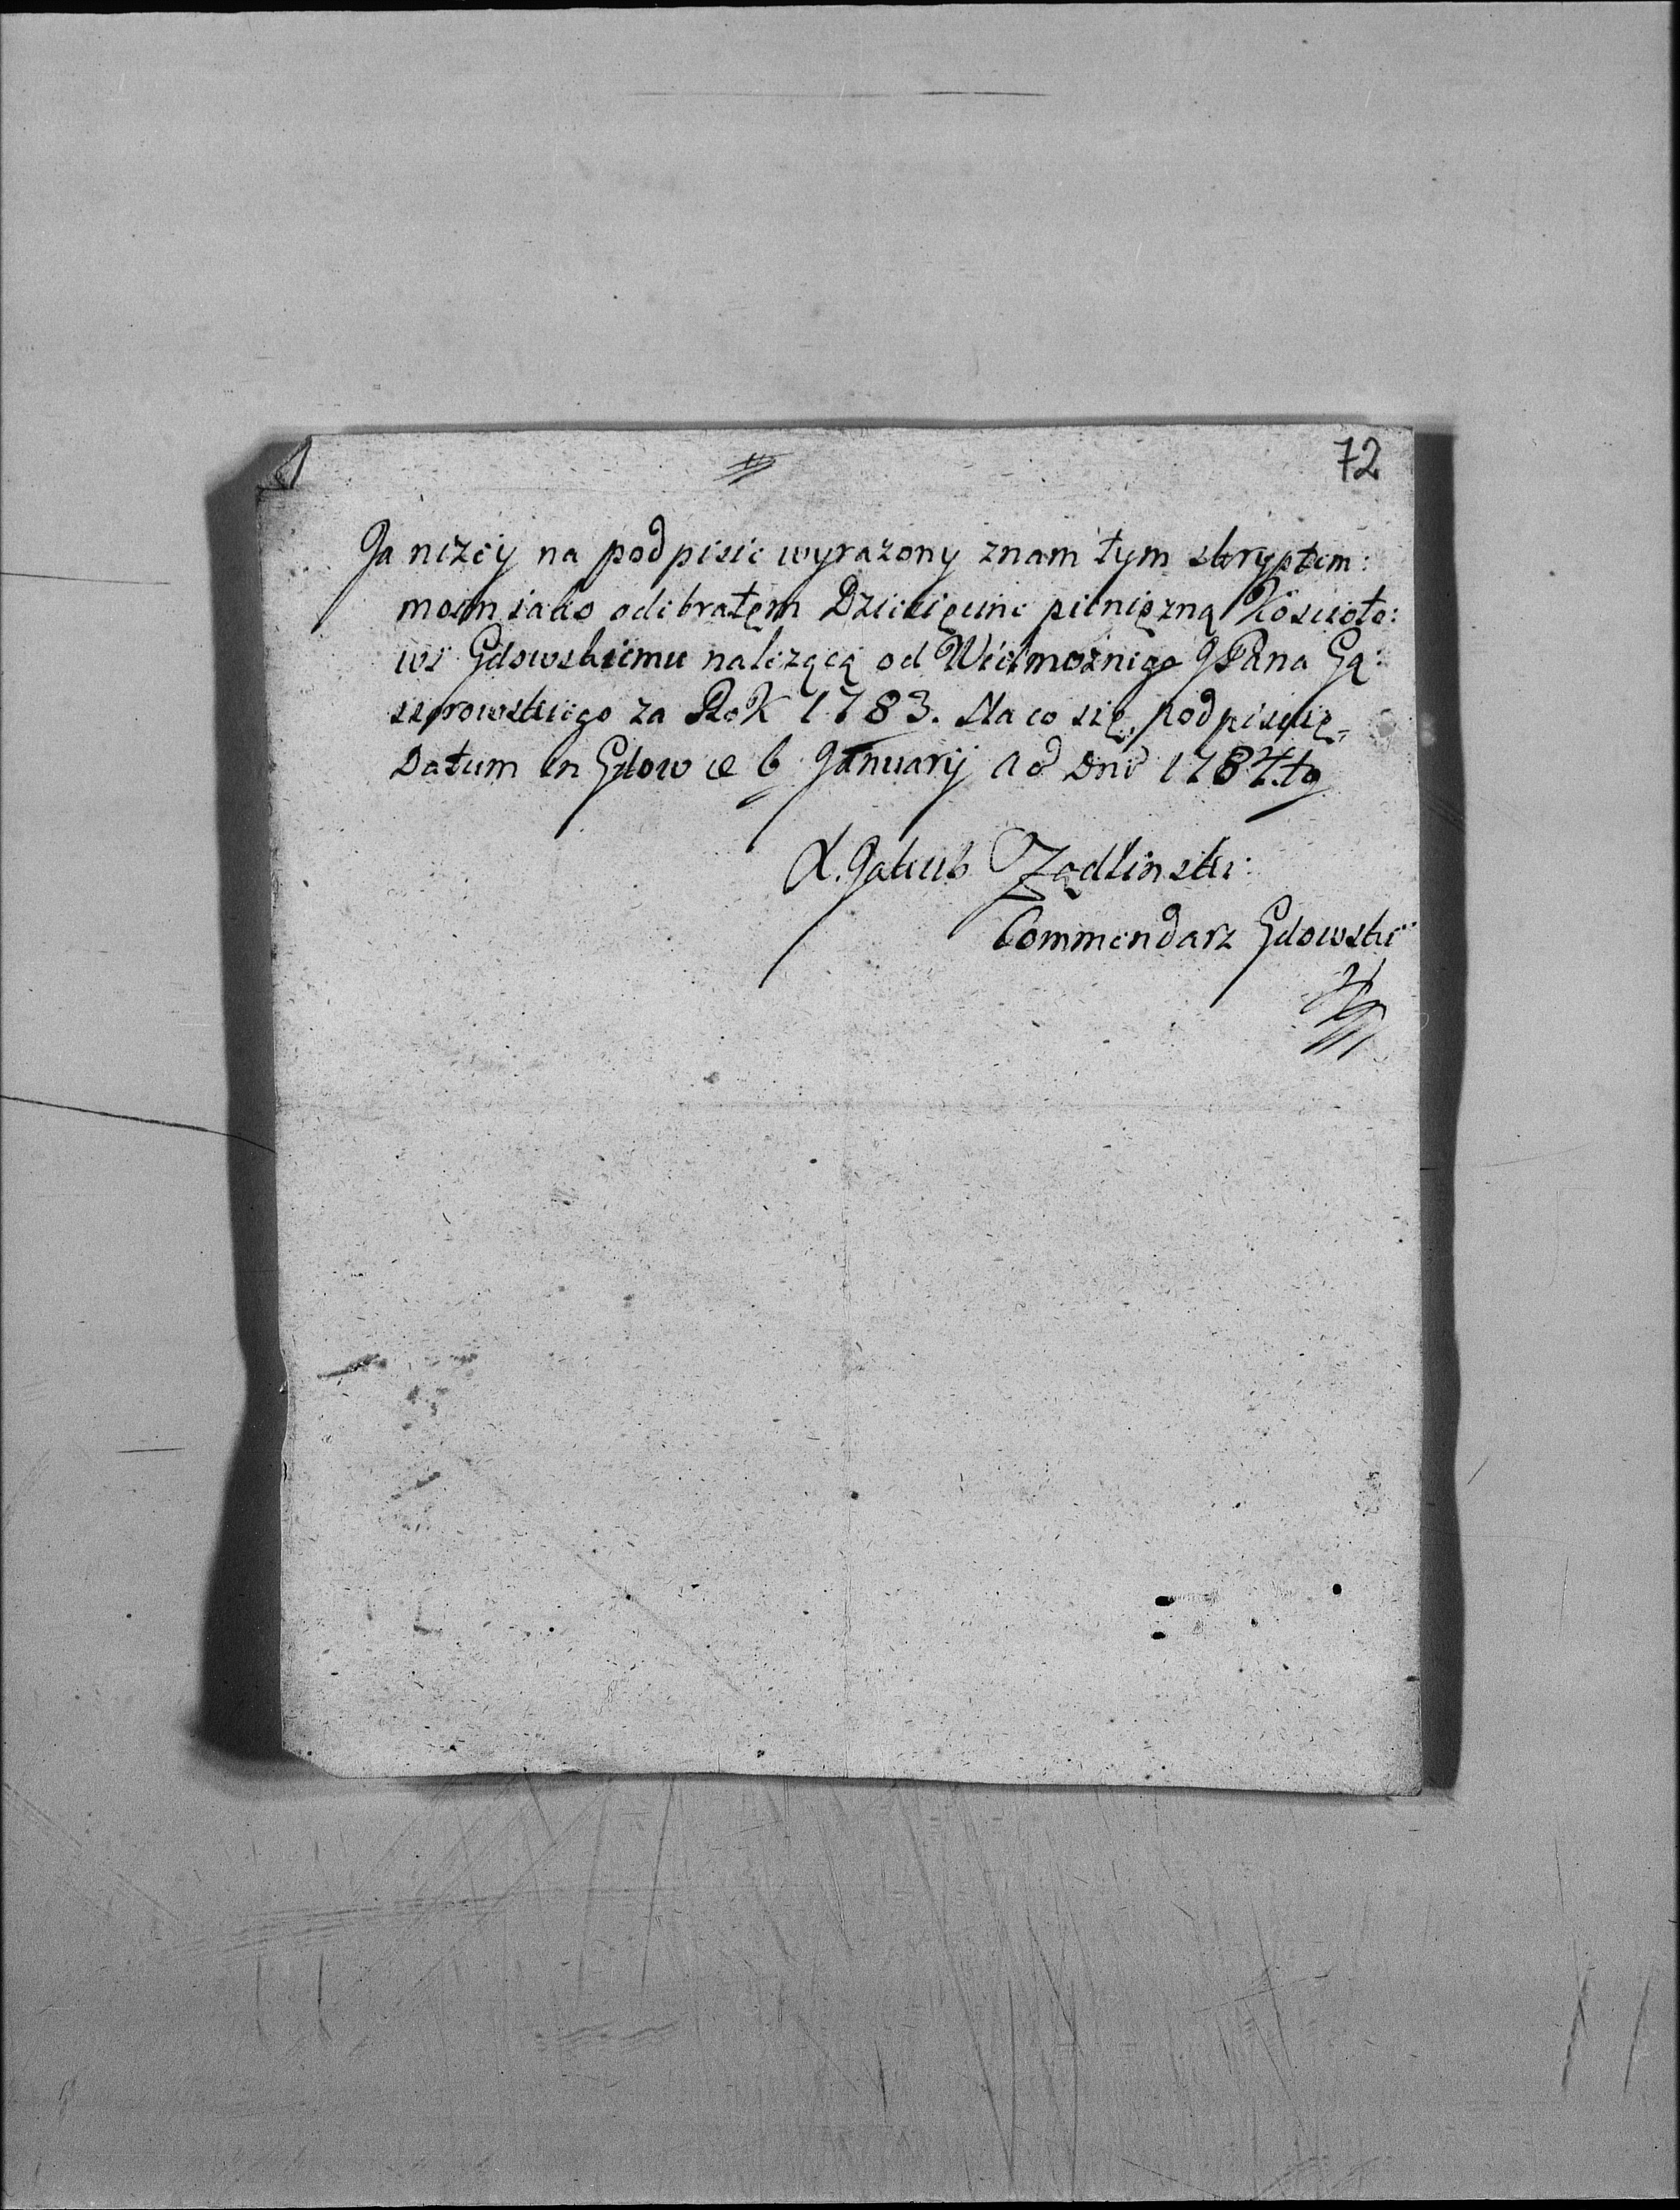 72
Ja nizey na podpisie wyrazony znam tym skryptem:
moim jako odebrałem Dziesięcine pienięzną Kościoło:
wi Gdowskiemu nalezącą od Wielmoznego JPana Gą:
sierowskiego za Rok 1783. Na co się podpisuię
Datum in Gdow 6 January Ao Dni 1784.to
X. Jakub Ządlinski:
Commendarz Gdowski